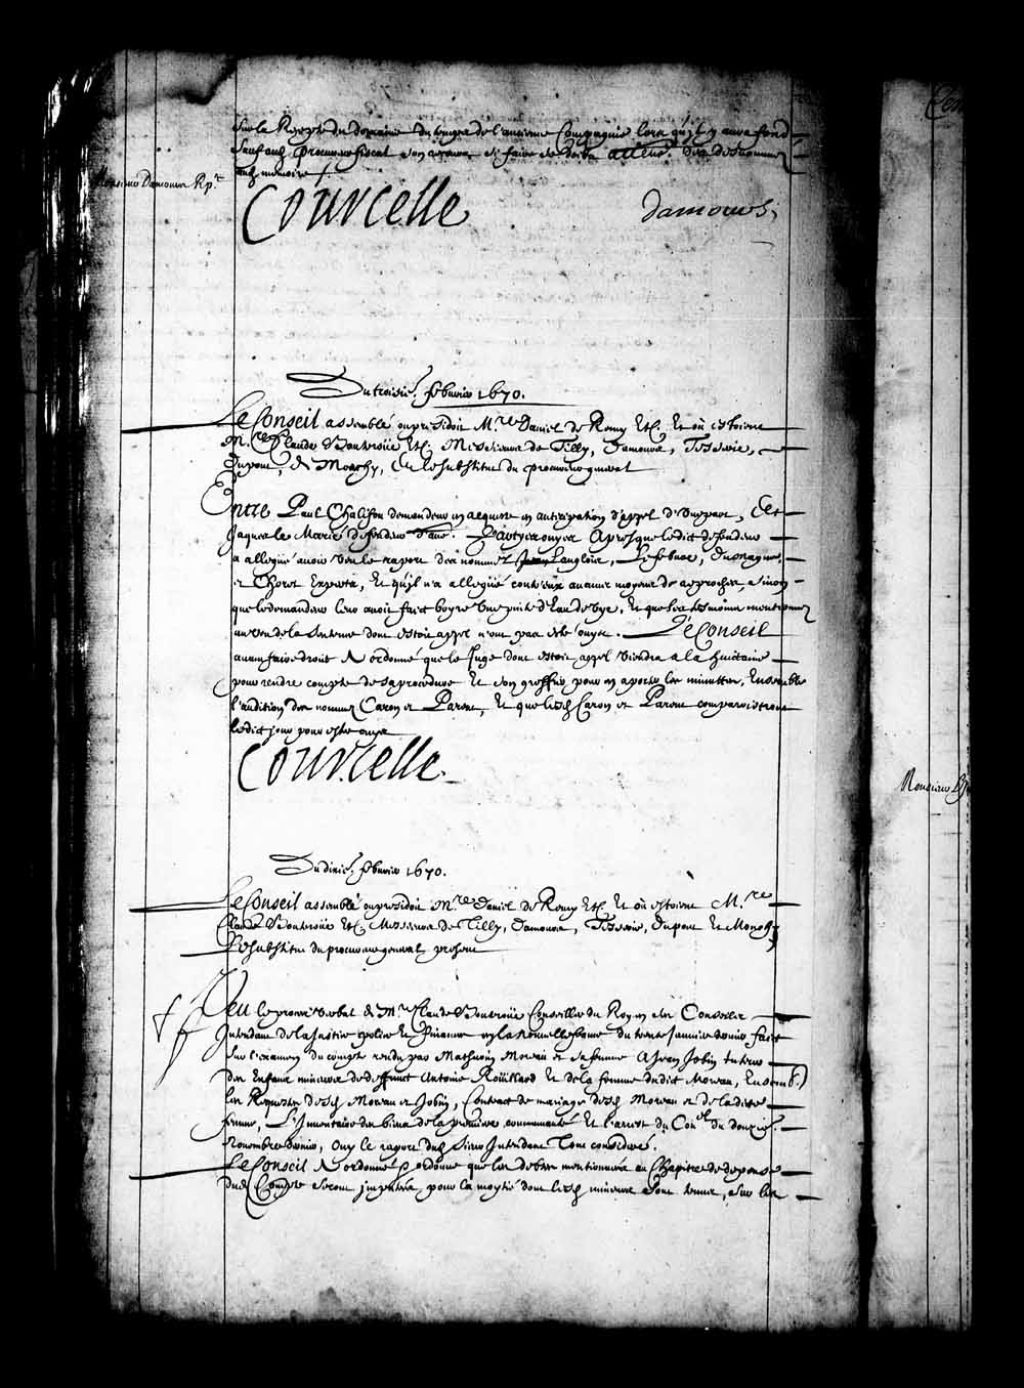 Sur la Recepte du domaine du temps de l'antienne Compagnie lors qu'il y aura fond
Sauf aud. procureur fiscal son recours
aud. memoire
Monsieur Damours Rp.r
Courcelle
Damours
Du troisie. febvrier 1670.
Le Conseil assemblé ou presidoit M.re Daniel de Remy Etc. Et où estoient
M.re Claude de Bouteroüe Etc. Messieurs de Tilly, Damours, Tesserie,
Dupont, de Mouchy, Et le substitut du procureur general
Entre Paul Chalifou demandeur en requeste en anticipation d'appel d'une part, Et
Jacques le Marié defendeur d'au.e Partyes ouyes Apres que ledit defendeur
a allegué avoir veu le raport des nommez Langlois, Lefebvre,
et Choret Experts, Et qu'il n'a allegué contr'eux aucuns moyens de reproches, sinon
que le demandeur leur avoit faict boyre une pinte d'Eau de vye, Et que les tesmoins mentionnez
au veu de la sentence dont estoit appel n'ont pas esté ouys. Le Conseil
avant faire droit A ordonné que le Juge dont estoit appel viendra a la huitaine
pour rendre compte de sa procedure Et son greffier pour en aporter les minuttes, Ensemble
l'audition des nommez Caron et Parent, Et que lesd. Caron et Parent comparoistront
ledit jour pour estre ouys
Courcelle
Du dixie. febvrier 1670.
Le Conseil assemblé ou presidoit M.re Daniel de Remy Etc. Et où estoient M.re
Claude de Bouteroüe Etc. Messieurs de Tilly, Damours, Tesserie, Dupont Et Mouchy
Le substitut du procureur general present
Veu le procez verbal de M.re Claude de Bouteroüe Conseiller du Roy en ses Conseils
Intendant de la Justice police Et finances en la Nouvelle france du trente Janvier dernier faict
Sur l'examen du compte rendu par Mathurin Moreau et sa femme a Jean Jobin tuteur
des Enfans mineurs de deffunct Antoine Roüillard Et de la femme dudit Moreau, Ensemb.
les Requestes desd. Moreau et Jobin, Contract de mariage desd. Moreau et de ladite
femme, L'Inventaire des biens de la premiere communauté Et l'arrest du Con.el du douzie.
Novembre dernier, Ouy le raport dud. Sieur Intendant Tout consideré.
Le Conseil A ordonné Et ordonne que les debtes mentionnées au Chapitre de depense
dud. Compte seront imputées pour la moytié dont lesd. mineurs sont tenus, sur les
Monsieur